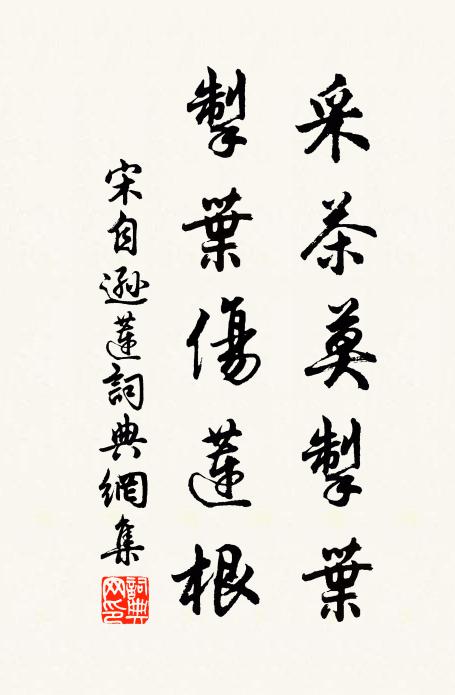 采茶莫掣葉
掣葉傷蓮根
宋自遜蓮詞典網集
詞典
网印